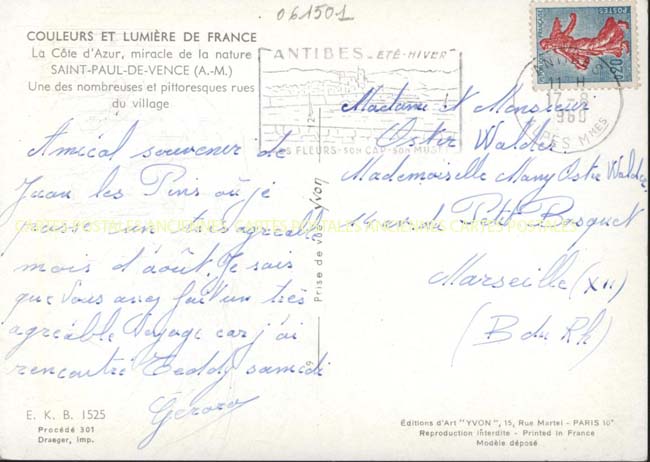 061501
COULEURS ET LUMIÈRE DE FRANCE
La Côte d'Azur, miracle de la nature
SAINT-PAUL-DE-VENCE (A.-M.)
Une des nombreuses et pittoresques rues
du village
ANTIBES - ETÉ-HIVER
FLEURS-SON CAP-SON MUSÉE
11 H
960
ALPES MMES
POSTES
0,20
Amical souvenir de
Juan les Pins où je
passe un très agréable
mois d'août. Je sais
que vous avez fait un très
agréable voyage car j'ai
rencontré Teddy samedi
Gérard
Prise de vue Yvon
Madame & Monsieur
Ostir Walder
Mademoiselle Many Ostir Walder
Petit Bosquet
Marseille (XII)
(B du Rh)
CARTES POSTALES ANCIENNES CARTES POSTALES ANCIENNES CARTES POSTALES
E. K. B. 1525
Procédé 301
Draeger, imp.
Éditions d'Art "YVON", 15, Rue Martel - PARIS 10e
Reproduction interdite - Printed in France
Modèle déposé